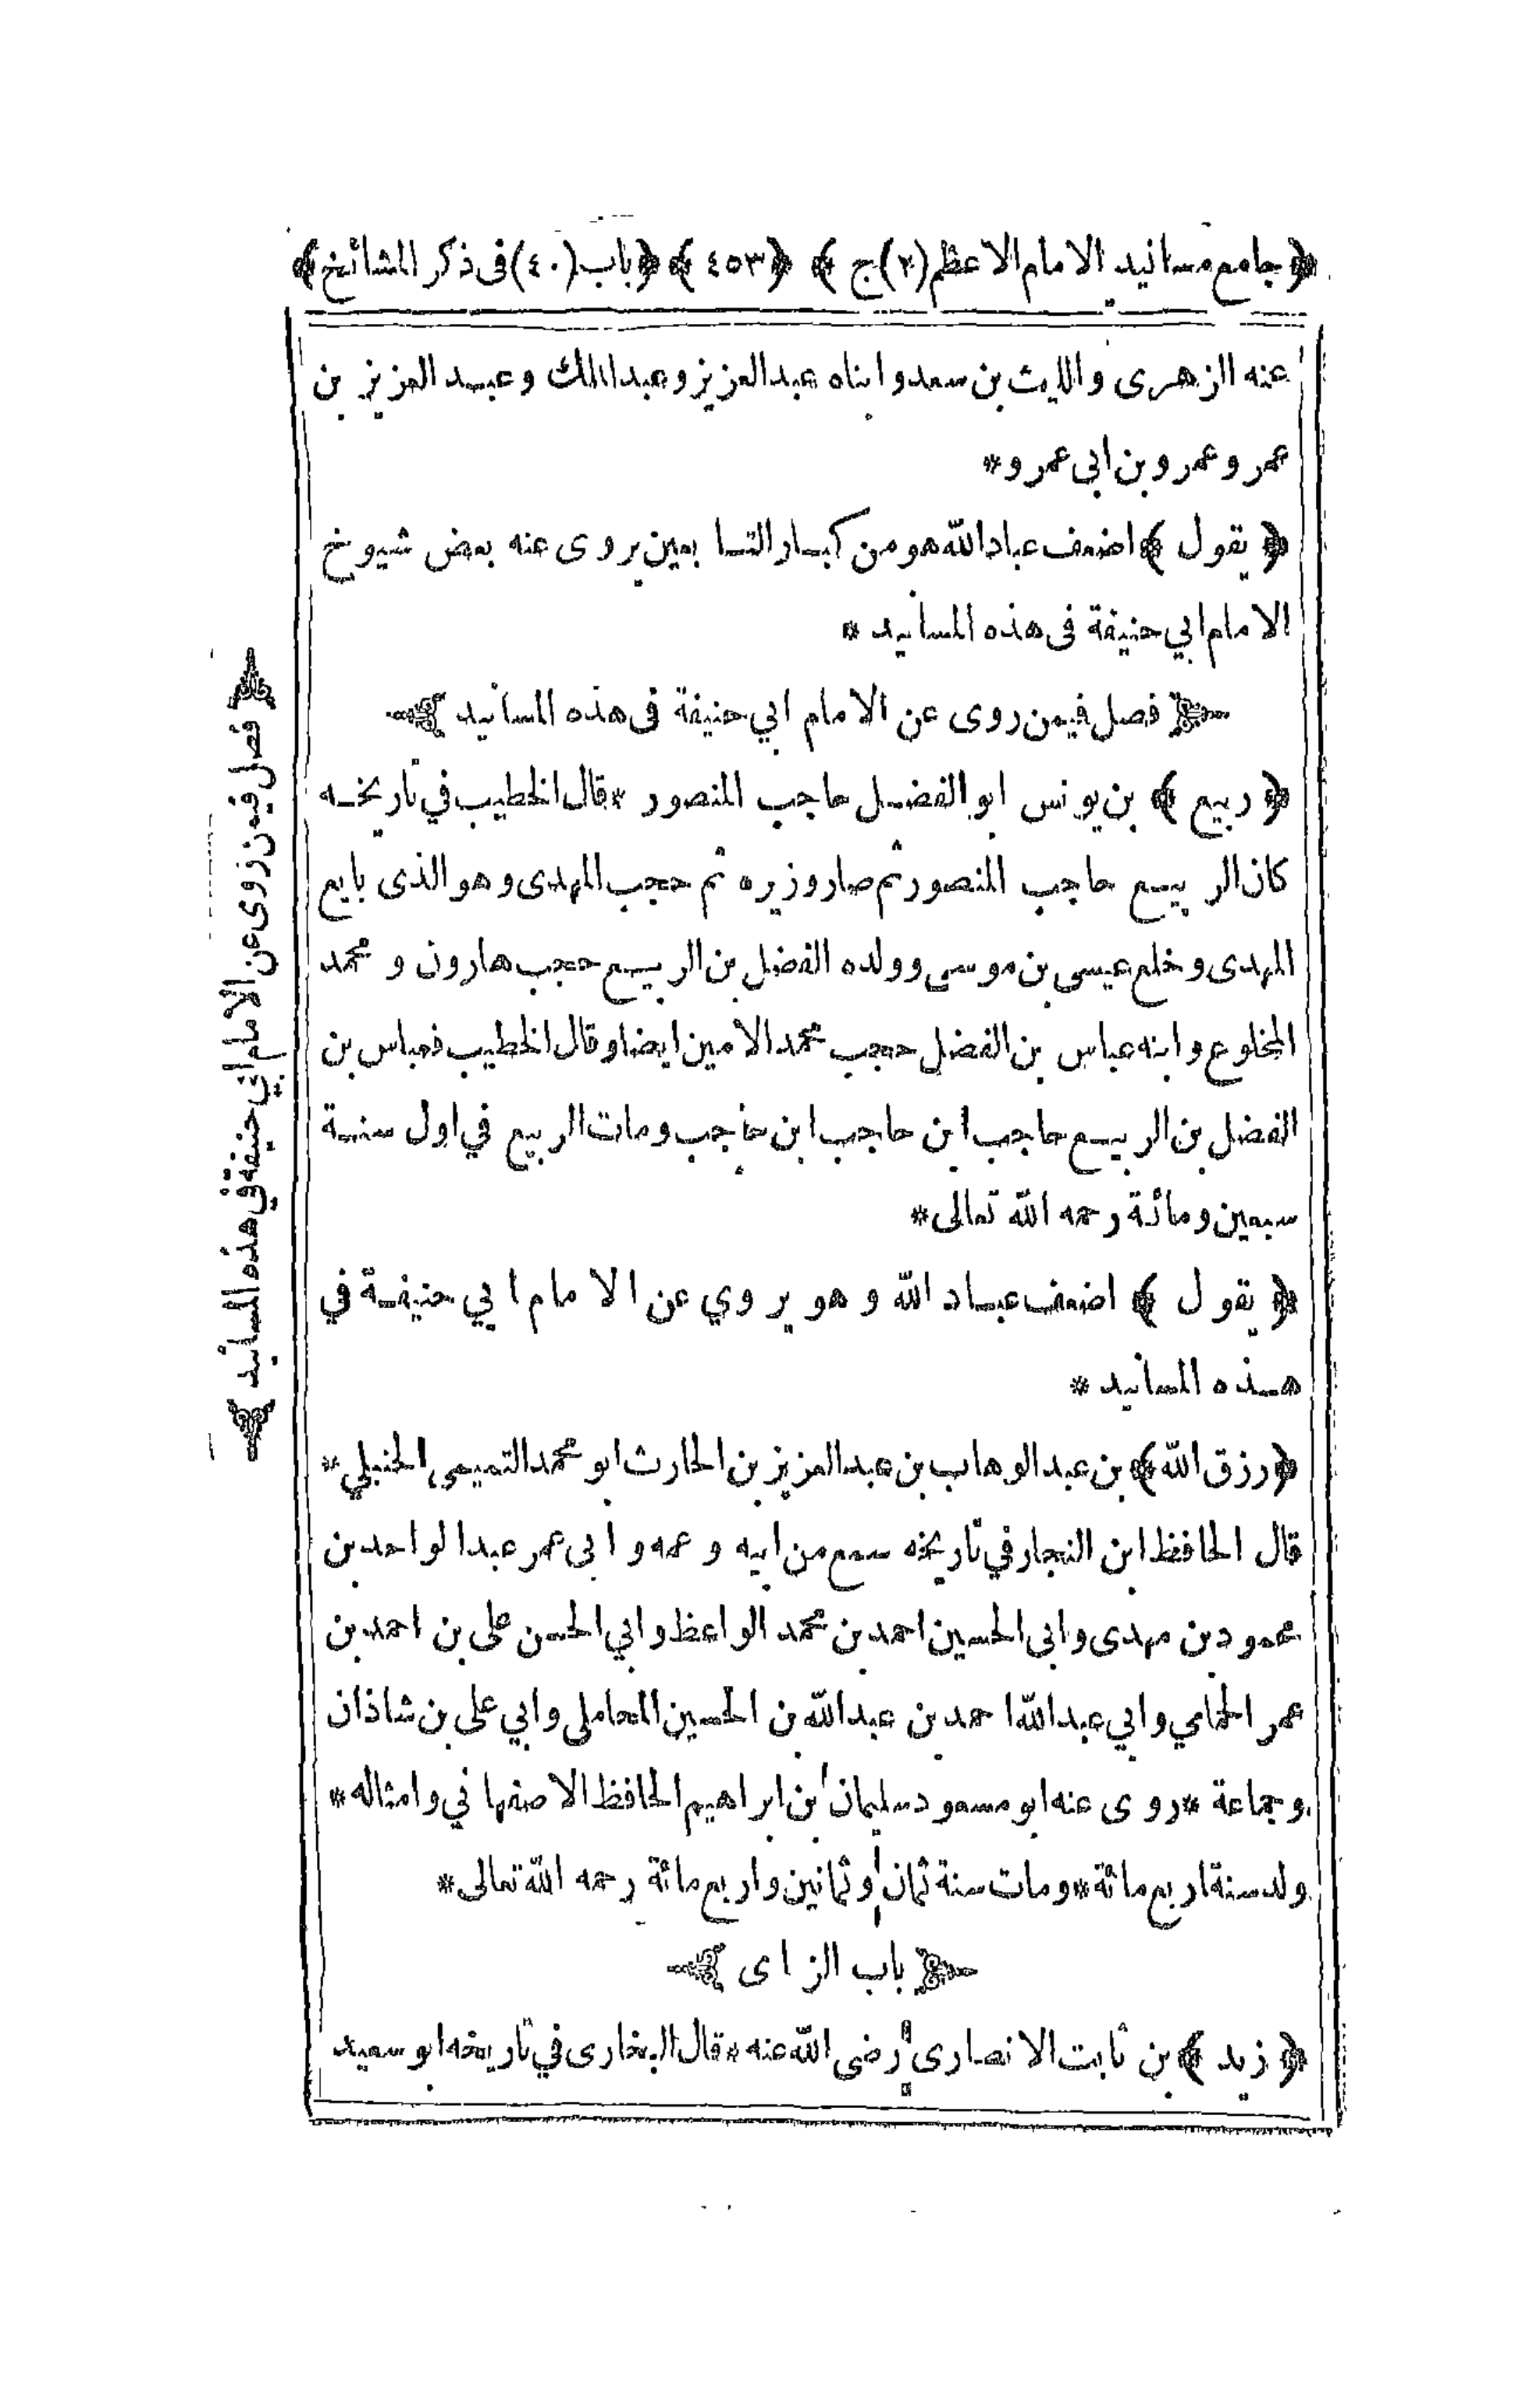 ﴿جامع مسانيد الامام الاعظم (٢) ج﴾ ﴿٤٥٣﴾ ﴿باب (٤٠) فى ذكر المشائخ﴾
عنه الزهرى والليث بن سعد وابناه عبدالعزيز وعبدالملك وعبد العزيز بن
عمر وعمرو بن ابى عمرو*
﴿يقول﴾ اضعف عبادالله هو من كبار التابعين يروى عنه بعض شيوخ
الامام ابي حنيفة فى هذه المسانيد*
﴿فصل فيمن روى عن الامام ابي حنيفة فى هذه المسانيد﴾
﴿ربيع﴾ بن يونس ابو الفضل حاجب المنصور *قال الخطيب في تاريخه
كان الربيع حاجب المنصور ثم صار وزيره ثم حجب المهدى وهو الذى بايع
المهدى وخلع عيسى بن موسى وولده الفضل بن الربيع حجب هارون و محمد
المخلوع وابنه عباس بن الفضل حجب محمد الامين ايضا وقال الخطيب فعباس بن
الفضل بن الربيع حاجب ابن حاجب ابن حاجب ومات الربيع في اول سنة
سبعين ومائة رحمه الله تعالى*
﴿يقول﴾ اضعف عباد الله وهو يروي عن الامام ابي حنيفة في
هذه المسانيد*
﴿رزق الله﴾ بن عبد الوهاب بن عبد العزيز بن الحارث ابو محمد التميمى الحنبلي*
قال الحافظ ابن النجار في تاريخه سمع من ابيه وعمه وابى عمر عبد الواحد بن
محمود بن مهدى وابى الحسين احمد بن محمد الواعظ وابي الحسن على بن احمد بن
عمر الحمامي وابي عبدالله احمد بن عبدالله بن الحسين المحاملى وابي على بن شاذان
وجماعة *روى عنه ابو مسعود سليمان بن ابراهيم الحافظ الاصفهاني وامثاله*
ولد سنة اربع مائة*ومات سنة ثمان وثمانين واربع مائة رحمه الله تعالى*
﴿باب الزاى﴾
﴿زيد﴾ بن ثابت الانصارى رضى الله عنه *قال البخارى في تاريخه ابو سعيد
﴿فصل فيمن روى عن الامام ابي حنيفة في هذه المسانيد﴾